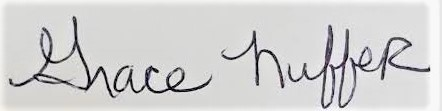 Grace Nuffer